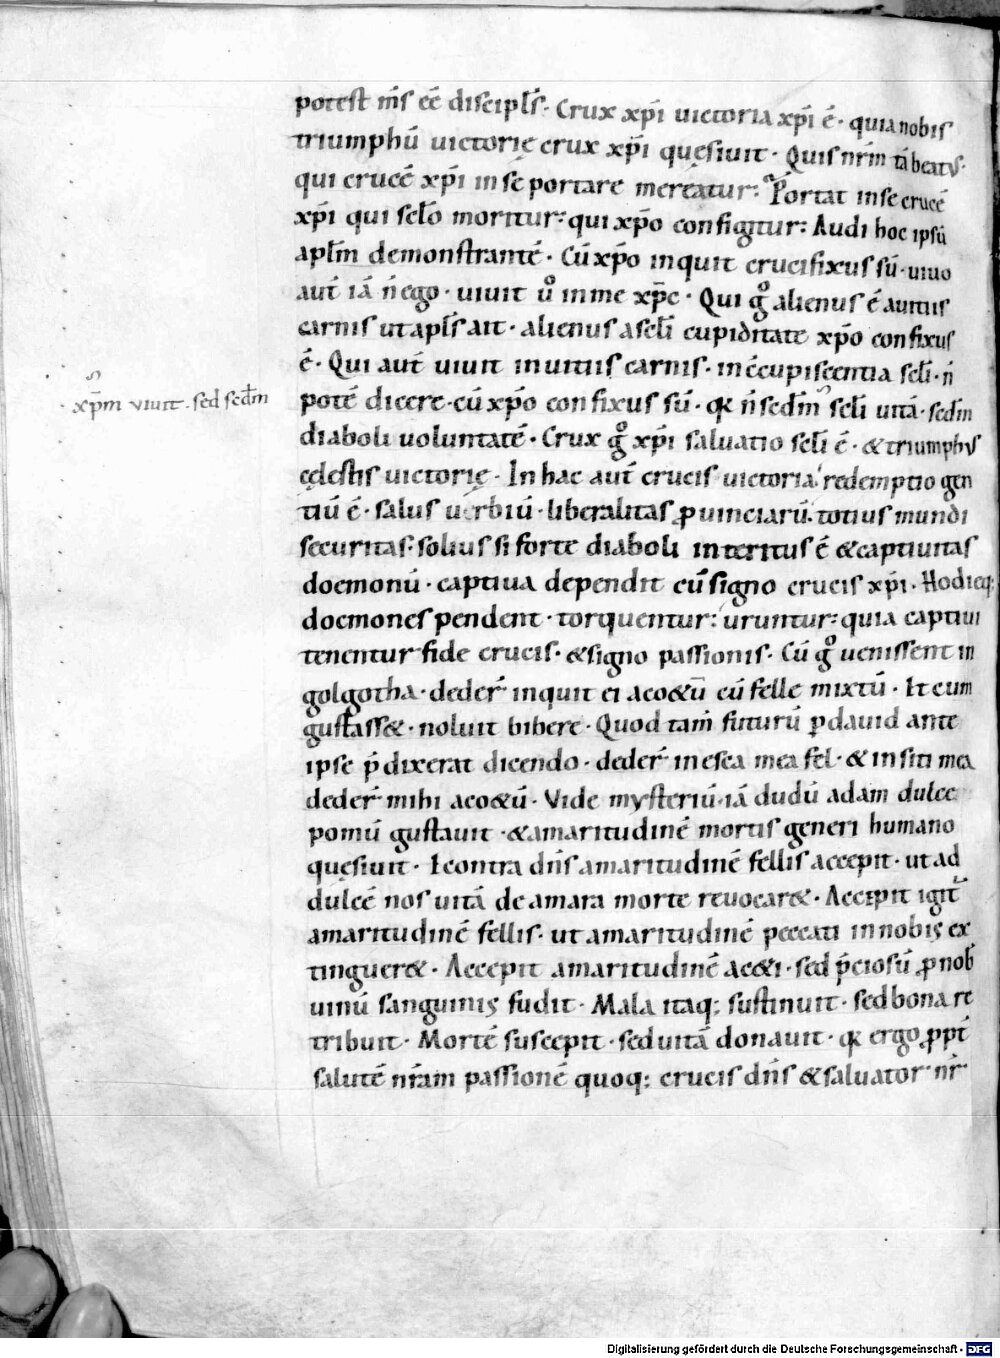 potest m̄s eē discipl̄s· Crux xp̄i uictoria xp̄i ē· quia nobis
triumphū uictorię crux xp̄i quęsiuit· Quis nr̄m tā beatus·
qui crucē xp̄i in se portare mereatur: Portat in se crucē
xp̄i qui sclo moritur: qui xp̄o configitur: Audi hoc ipsū
apl̄m demonstrantē· Cū xp̄o inquit crucifixus sū· uiuo
aut̄ iā n̄ ego· uiuit u̾o in me xp̄c· Qui g̊ alienus ē a uitiis
carnis ut apl̄s ait· alienus a scl̄i cupiditate xp̄o confixus
ē· Qui aut̄ uiuit in uitiis carnis· in ccupiscentia scl̄i· n̄
xp̄m viuit· sed sedm̄
potē dicere· cū xp̄o confixus sū· qꝛ n̄ sedm̄ scl̄i uitā· sedm̄
diaboli uoluntatē· Crux g̊ xp̄i saluatio scl̄i ē· & triumphus
cęlestis uictorię· In hac aut̄ crucis uictoria redemptio gen
tiū ē· salus urbiū· liberalitas ꝓuinciarū· totius mundi
securitas· solius si forte diaboli interitus ē & captiuitas
doemonū· captiua dependit cū signo crucis xp̄i· Hodieq;
doemones pendent· torquentur: uruntur: quia captiui
tenentur fide crucis· & signo passionis· Cū g̊ uenissent in
golgotha· deder̄ inquit ei aco&ū cū felle mixtū· Et cum
gustass&· noluit bibere· Quod tam̄ futurū ꝑ dauid ante
ipse p̄dixerat dicendo· deder̄ in esca mea fel· & in siti mea
deder̄ mihi aco&ū· Vide mysteriū· iā dudū adam dulce
pomū gustauit· & amaritudinē mortis generi humano
quęsiuit· Econtra dn̄s amaritudinē fellis accepit· ut ad
dulcē nos uitā de amara morte reuocar&· Accepit igit̄
amaritudinē fellis· ut amaritudinē peccati in nobis ex
tinguer&· Accepit amaritudinē ac&i· sed p̄ciosū ꝓ nob̄
uinū sanguinis fudit· Mala itaq; sustinuit· sed bona re
tribuit· Mortē suscepit· sed uitā donauit· qꝛ ergo ꝓpt̄
salutē nr̄am passionē quoq; crucis dn̄s & saluator nr̄